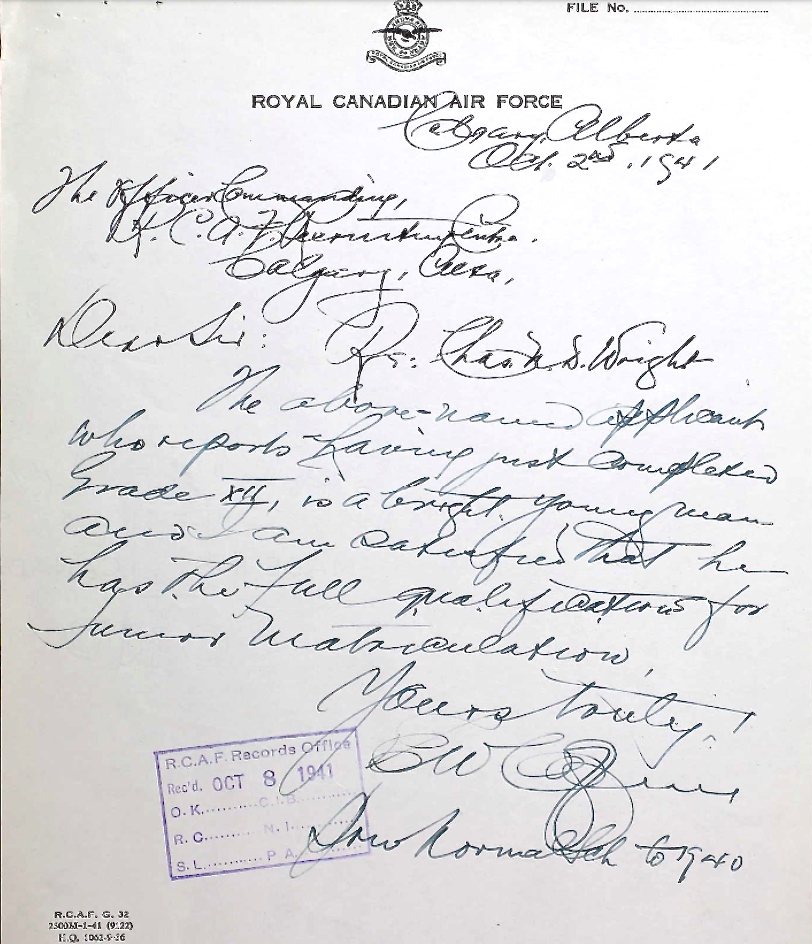 FILE No.
ROYAL CANADIAN AIR FORCE
Calgary, Alberta
Oct. 2nd, 1941
The Officer Commanding,
R.C.A.F. Recruiting Centre.
Calgary, Alta,
Dear Sir: Re: Chas. N. D. Wright
The above-named applicant
who reports having just completed
Grade XII, is a bright young man
and I am satisfied that he
has the full qualifications for
Junior Matriculation,
Yours truly,
E W
Normal Sch to 1940
R.C.A.F. Records Office
Rec'd. OCT 8 1941
O.K. C.I.B.
R.C. N.I.
S.L. P.A.
R.C.A.F. G. 32
2500M-1-41 (9122)
H.Q. 1062-9-36